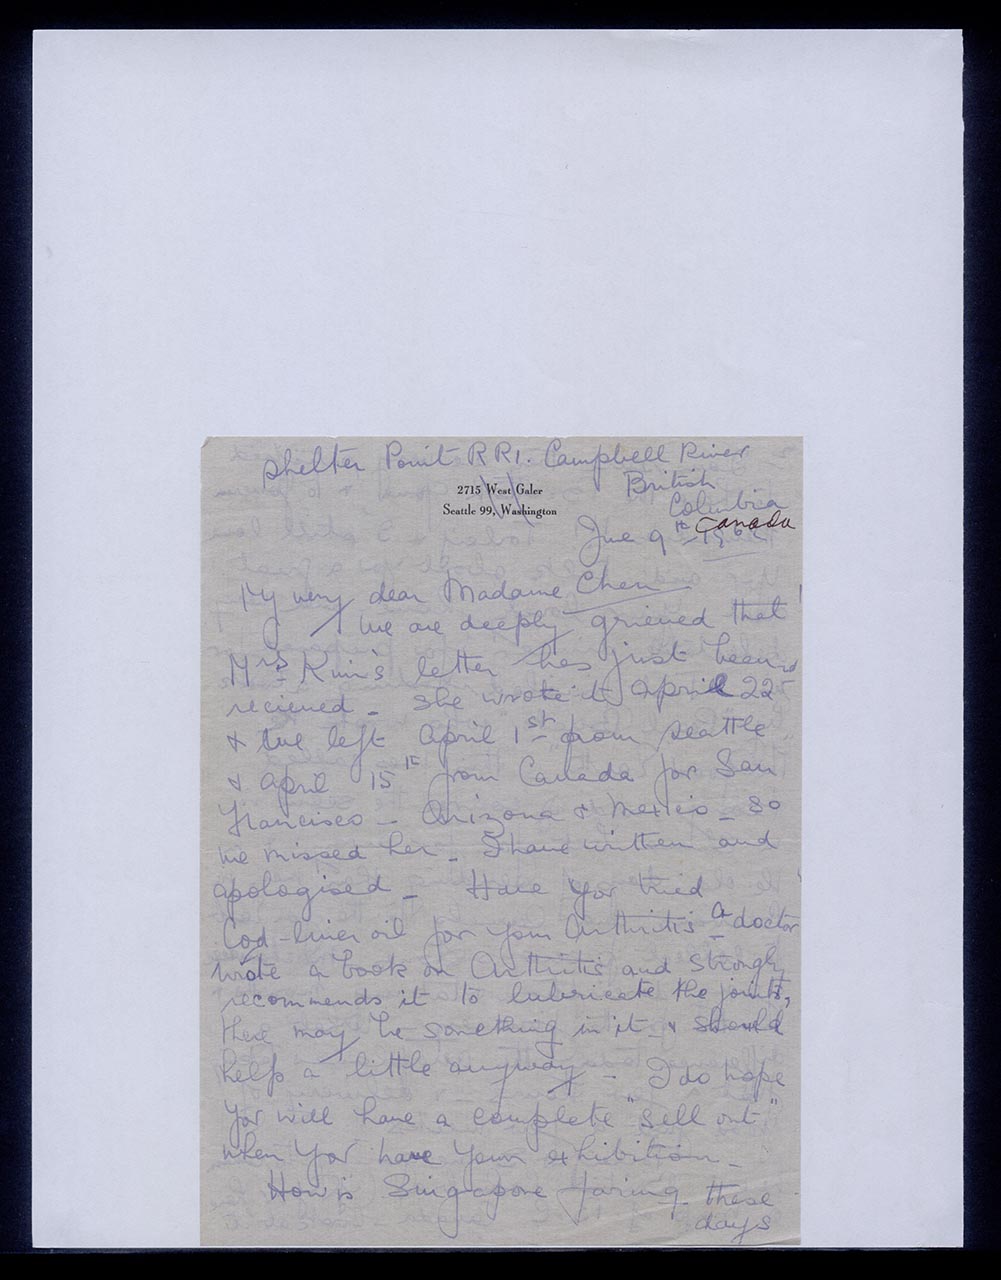 Shelter Point R R 1. Campbell River
2715 West Galer
Seattle 99, Washington
British
Columbia
Canada
June 9th
My very dear Madame Chen
We are deeply grieved that
Mrs letter has just been
recieved - She wrote it April 22
& we left April 1st from Seattle
& April 15th from Canada for San
Francisco - Arizona & Mexico - so
we missed her - I have written and
apologised - Have you tried
Cod-liver oil for your Arthritis - a doctor
wrote a book on Arthritis and strongly
recommends it to lubricate the joints,
there may be something in it & should
help a little anyway - I do hope
you will have a complete "sell out"
when you have your exhibition -
How is Singapore faring these
days